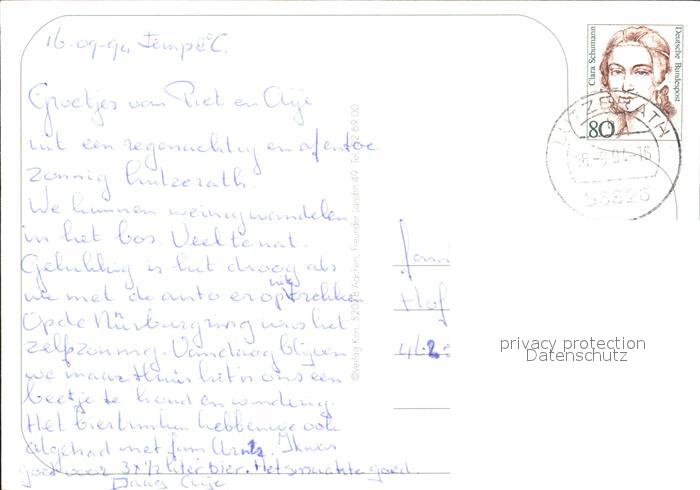 16-09-94 Temp 8°C.
Groetjes van Piet en
uit een regenachtig en af en toe
zonnig Lutzerath.
We kunnen weinig wandelen
in het bos. Veel te nat.
Gelukkig is het droog als
we met de auto er op uit trekken
Op de Nürburgring was het
zelfs zonnig. Vandaag blijven
we maar thuis het is ons een
beetje te koud en winderig.
Het hebben we ook
met fam
goed voor 3 x 1/2 liter bier. Het smaakte goed.
Daag
©Verlag Kort. 52078 Aachen, Freunder Landstr. 49
Clara Schumann
Deutsche Bundespost
80
LUTZERATH
16.-9.94-16
56826
Fam
Hof
privacy protection
Datenschutz